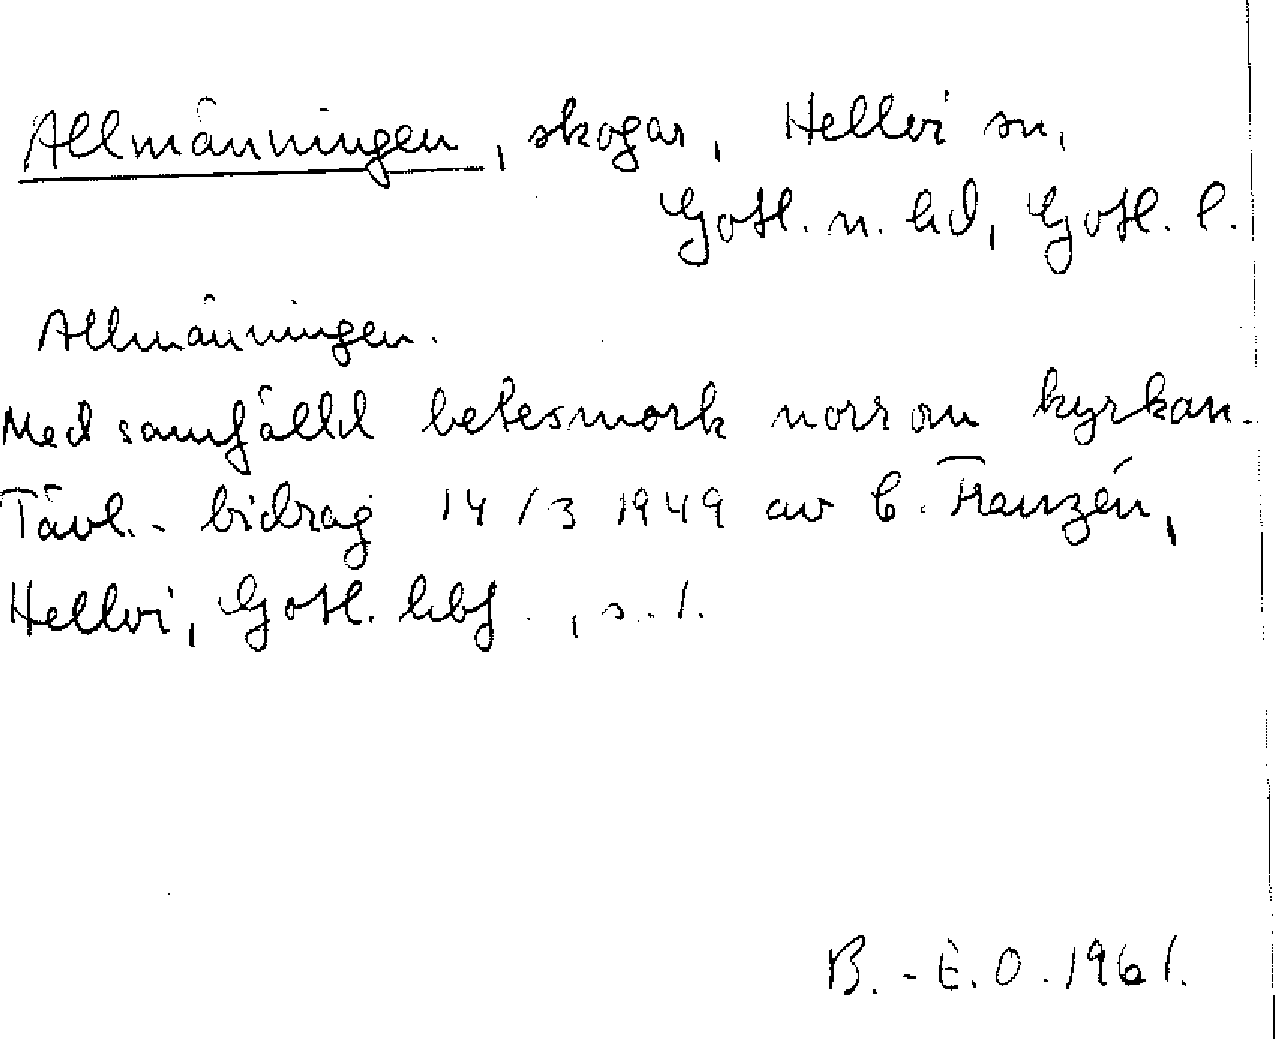 Allmänningen, skogar, Hellvi sn,
Gotl. n. hd, Gotl. l.
Allmänningen.
Med samfälld betesmark norr om kyrkan.
Tävl.-bidrag 14/3 1949 av C. Franzén,
Hellvi, Gotl. hbf., s. 1.
B.-E.O. 1961.